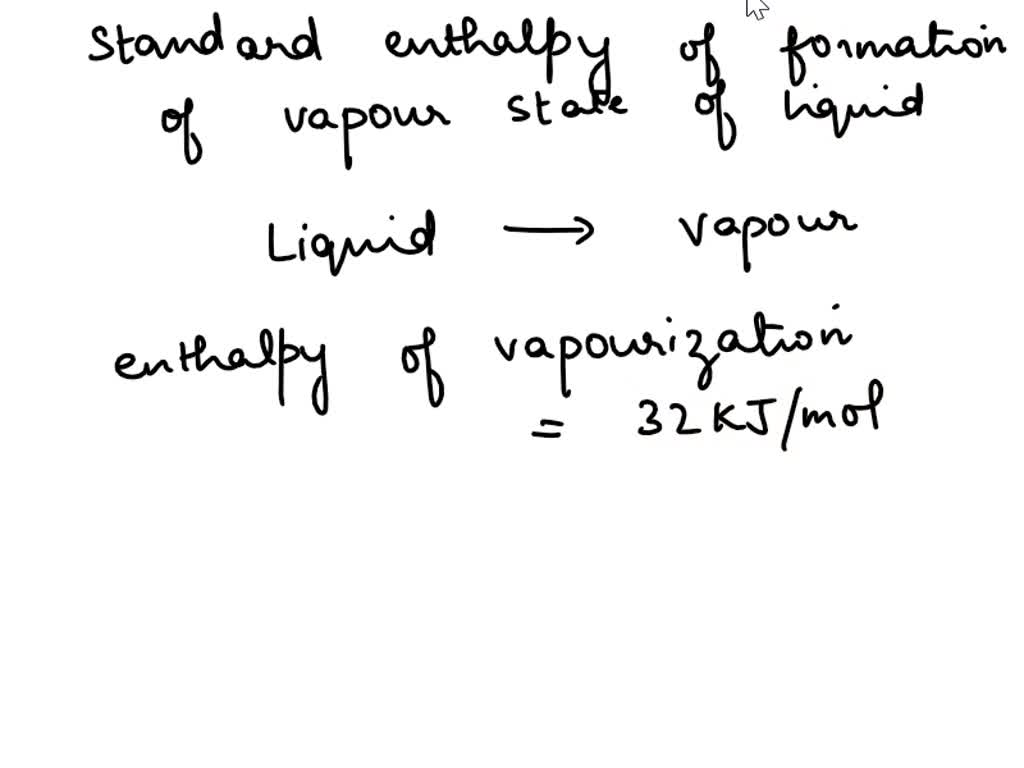 Standard enthalpy of formation
of vapour state of liquid
Liquid → vapour
enthalpy of vapourization
= 32 KJ/mol